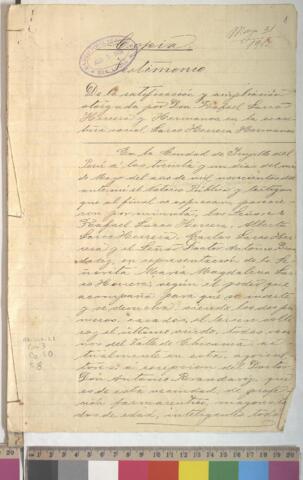 Copia
May 31
Testimonio
De la ratificación y ampliación
otorgada por Don Rafael Larco
Herrera y Hermanos en la escri
tura social Larco Herrera Hermanos
En la Ciudad de Trujillo del
Perú á los treinta y un dias del mes
de Mayo del año de mil novecientos
antemi el Notario Público y testigos
que al final se expresan, parecie
ron por minuta, los Señores
Rafael Larco Herrera, Alberto
Larco Herrera, Carlos Larco He
rrera y el Señor Doctor Antonio
en representación de la Se
ñorita Maria Magdalena Lar
co Herrera, según el poder que
acompaña para que se inserte
y se devuelva; siendo los dos pri
meros casados, el tercero solte
ro y el último viudo, todos veci
nos del Valle de Chicama ac
tualmente en esta, agricul
tores á excepcion del Doctor
Don Antonio que
es de esta vecindad, de profe
sión farmaceutico, mayores to
dos de edad, inteligentes todos